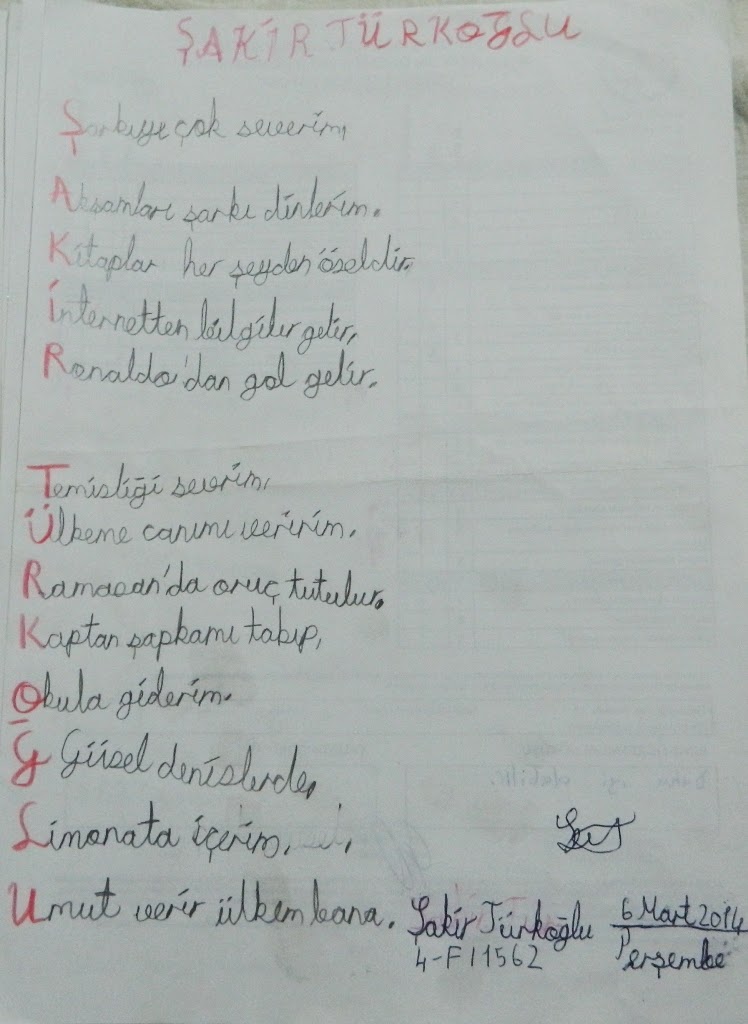 ŞAKİR TÜRKOĞLU
Şarkıyı çok severim,
Akşamları şarkı dinlerim.
Kitaplar her şeyden özeldir.
İnternetten bilgiler gelir,
Ronaldo'dan gol gelir.
Temizliği severim,
Ülkeme canımı veririm.
Ramazan'da oruç tutulur.
Kaptan şapkamı takıp,
Okula giderim.
Ğ Güzel denizlerde,
Limonata içerim,
Umut verir ülkem bana. Şakir Türkoğlu 6 Mart 2014
4-F / 1562 Perşembe